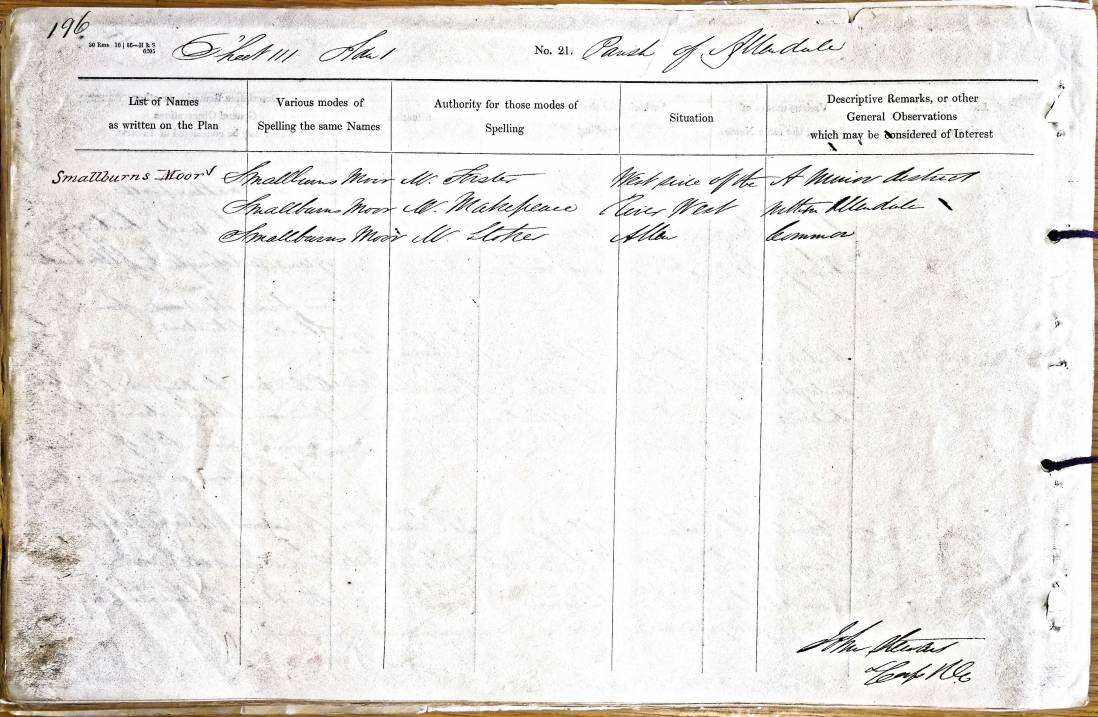 196
Sheet 111 No. 21. Parish of Allendale
List of Names
as written on the Plan
Various modes of
Spelling the same Names
Authority for those modes of
Spelling
Situation
Descriptive Remarks, or other
General Observations
which may be considered of Interest
Smallburns Moor Smallburns Moor Mr. Forster West side of the A Minor district
Smallburns Moor Mr. Makepeace River West within Allendale
Smallburns Moor Mr. Stoker Allen Common
John Stewart